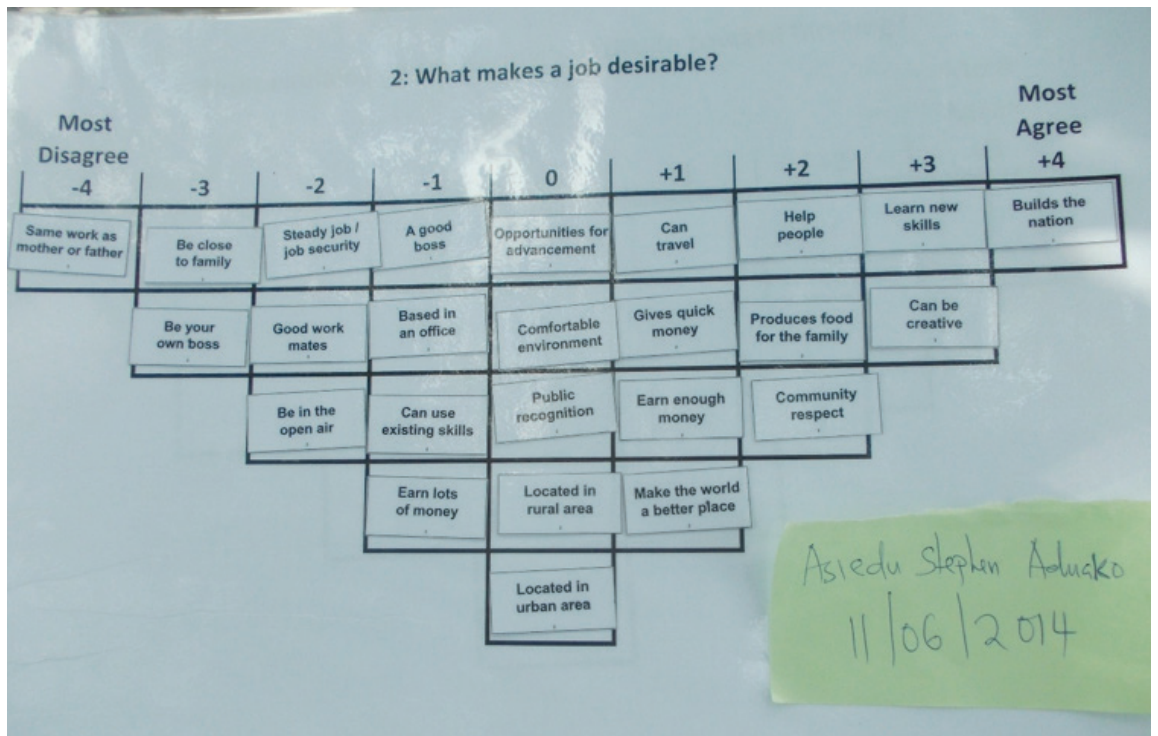 2: What makes a job desirable?
Most
Disagree
Most
Agree
-4
-3
-2
-1
0
+1
+2
+3
+4
Same work as
mother or father
Be close
to family
Steady job /
job security
A good
boss
Opportunities for
advancement
Can
travel
Help
people
Learn new
skills
Builds the
nation
Be your
own boss
Good work
mates
Based in
an office
Comfortable
environment
Gives quick
money
Produces food
for the family
Can be
creative
Be in the
open air
Can use
existing skills
Public
recognition
Earn enough
money
Community
respect
Earn lots
of money
Located in
rural area
Make the world
a better place
Located in
urban area
Asiedu Stephen Aduako
11/06/2014